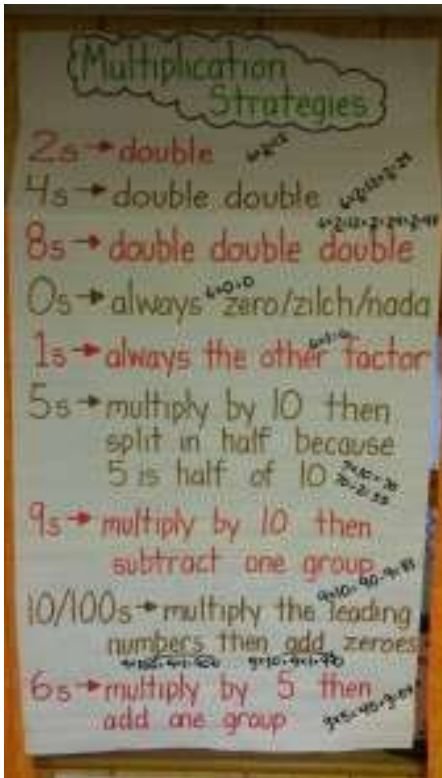 Multiplication
Strategies
2s → double 6×2=12
4s → double double
8s → double double double
0s → always zero/zilch/nada 6×0=0
1s → always the other factor
5s → multiply by 10 then
split in half because
5 is half of 10
9s → multiply by 10 then
subtract one group
10/100s → multiply the leading
numbers then add zeroes
6s → multiply by 5 then
add one group